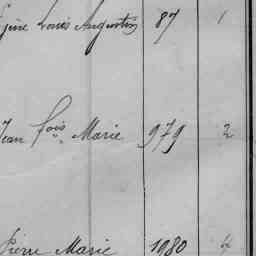 Louis Augustin 87 1
Jean fois Marie 979 2
Pierre Marie 1080 4